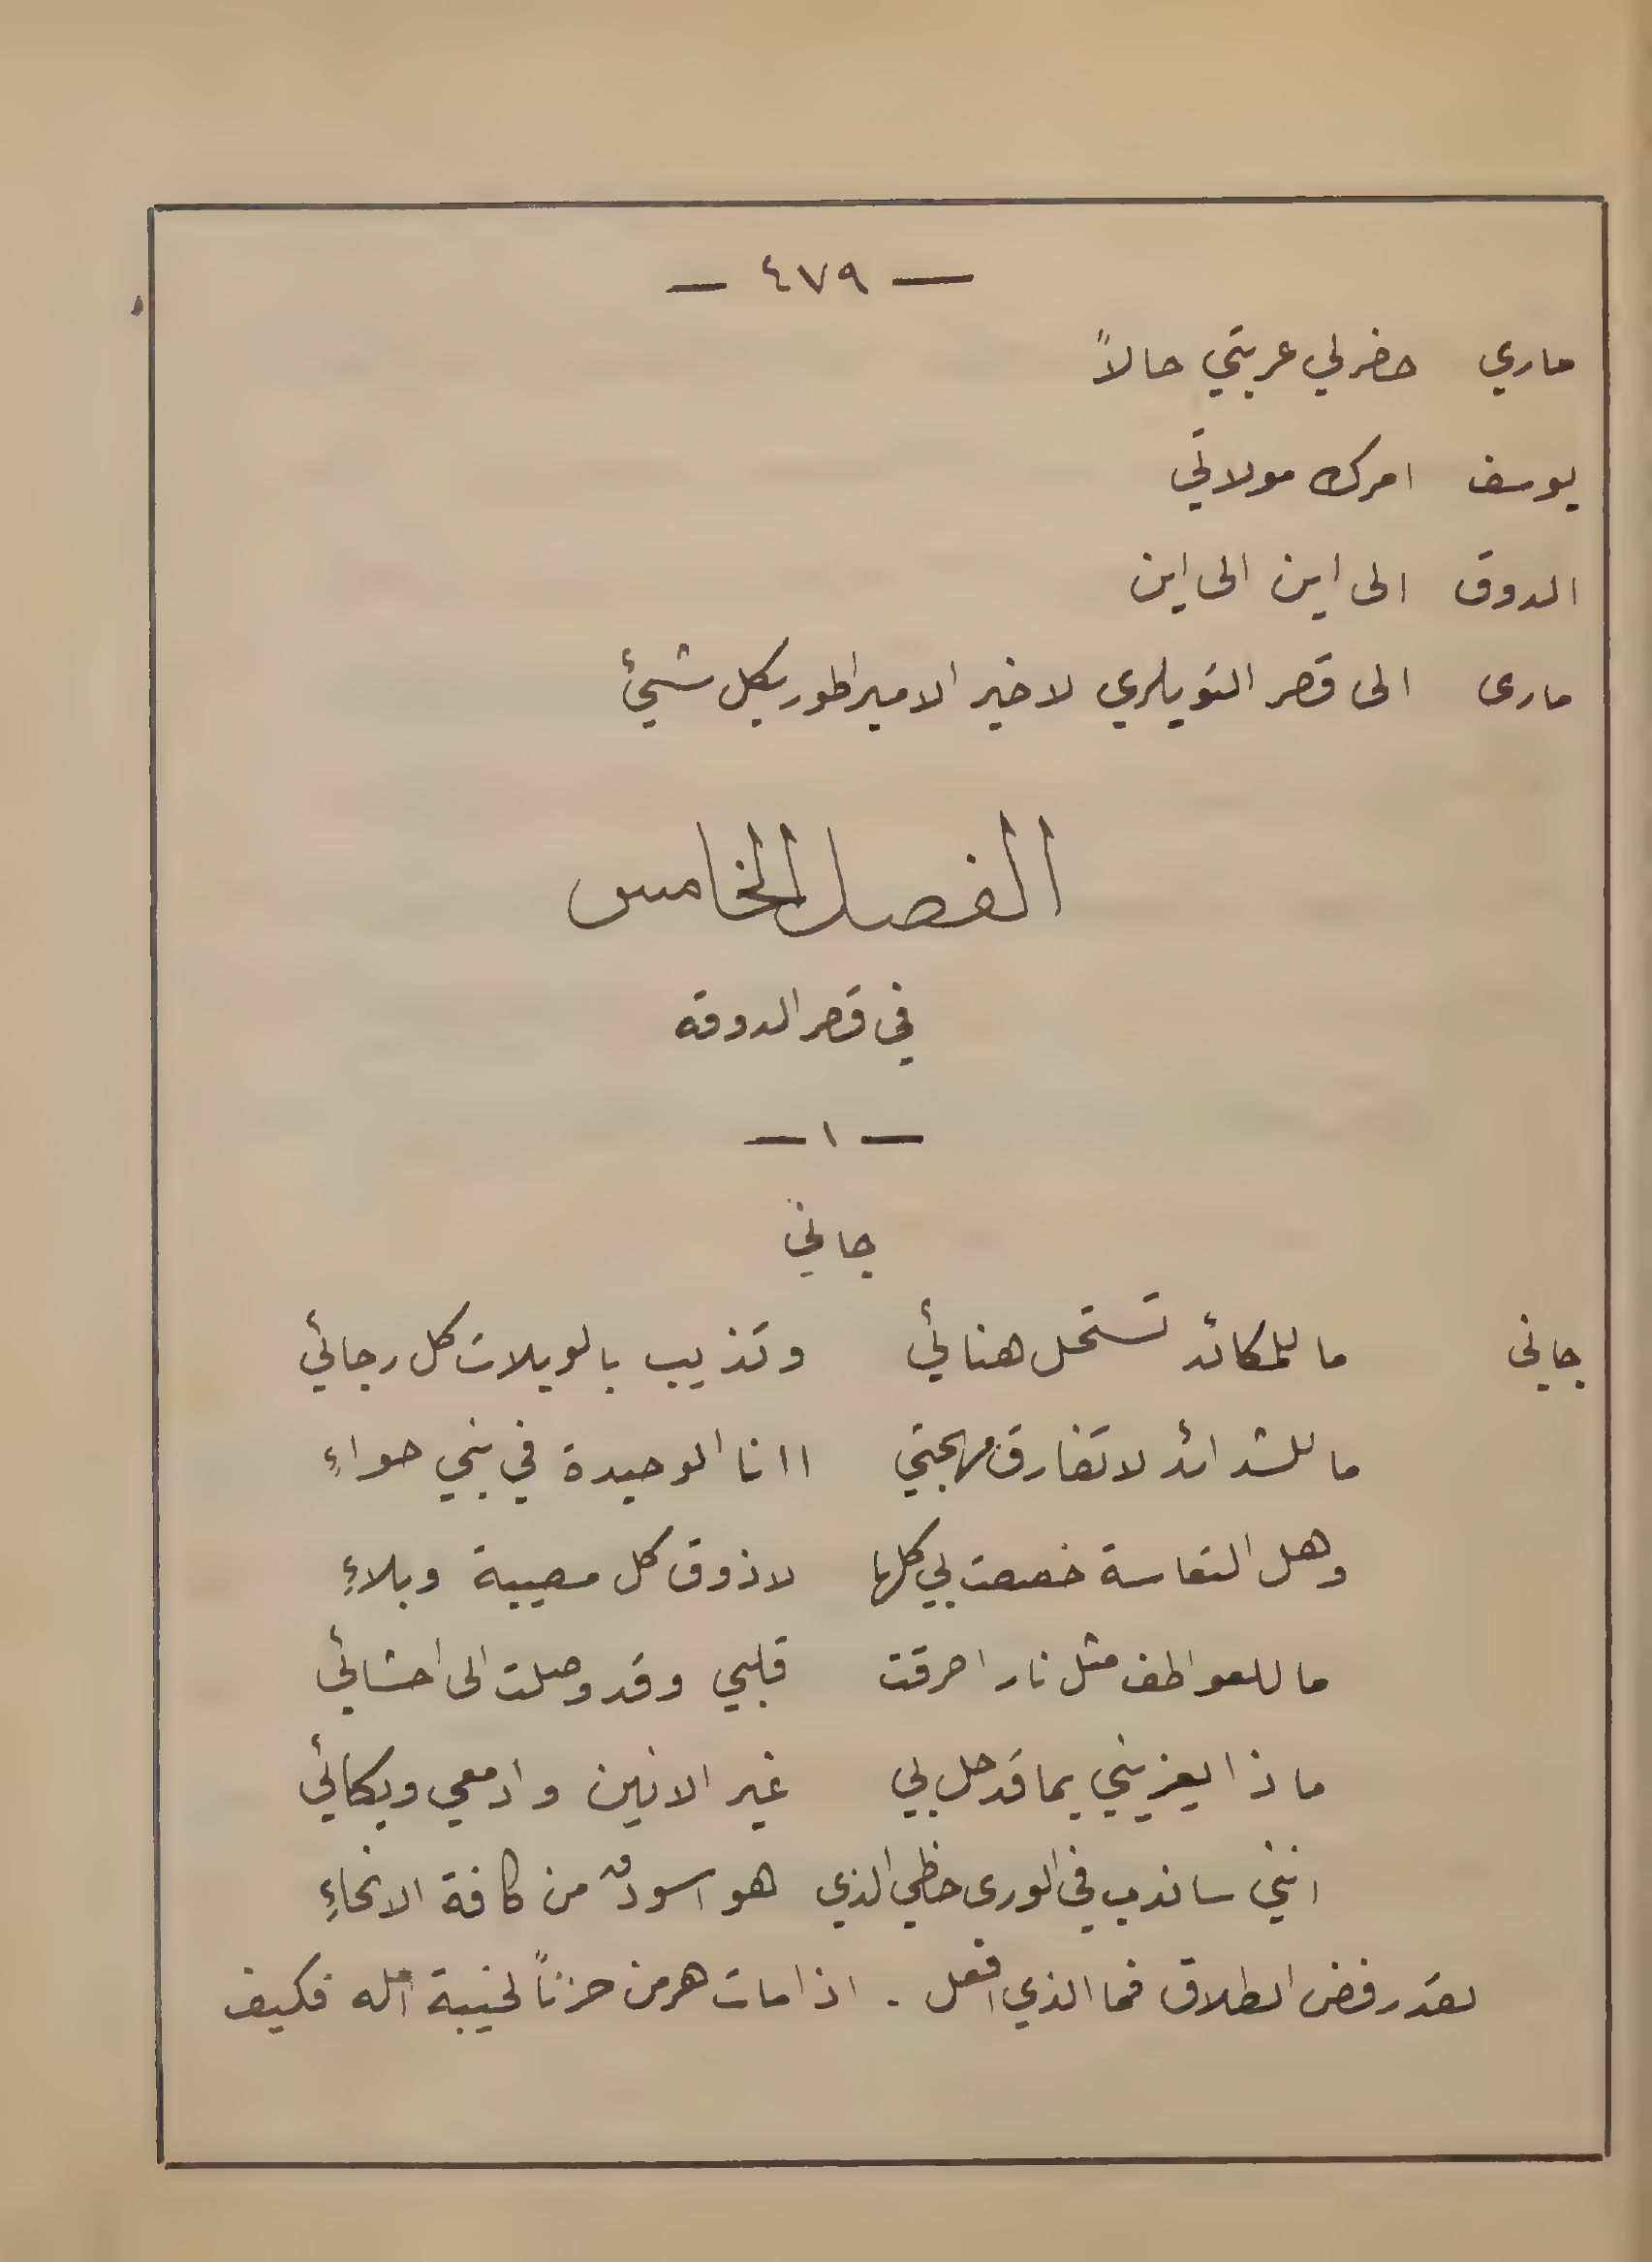 — ٤٧٩ —
ماري حضر لي عربتي حالاً
يوسف امرك مولاتي
الدوق الى اين الى اين
مارى الى قصر التويلري لاخبر الامبراطور بكل شيئ
الفصل الخامس
في قصر الدوقه
— ١ —
جاني
جانى ما للمكائد تستحل هنائي وتذيب بالويلات كل رجائي
ما للشدائد لا تفارق مهجتي اانا الوحيدة في بني حواءِ
وهل التعاسة خصصت بي كلها لاذوق كل مصيبة وبلاءِ
ما للعواطف مثل نار احرقت قلبي وقد وصلت الى احشائي
ماذا يعزيني بما قد حل بي غير الانين وادمعي وبكائي
انني ساندب في الورى حظي الذي هو اسود من كافة الانحاءِ
لقد رفض الطلاق فما الذي افعل . اذا مات هرمن حزناً لخيبة امله فكيف